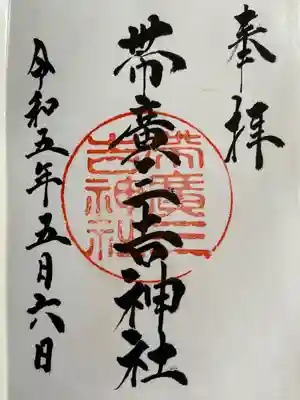 奉拝
帯廣三吉神社
帯廣三吉神社
令和五年五月六日